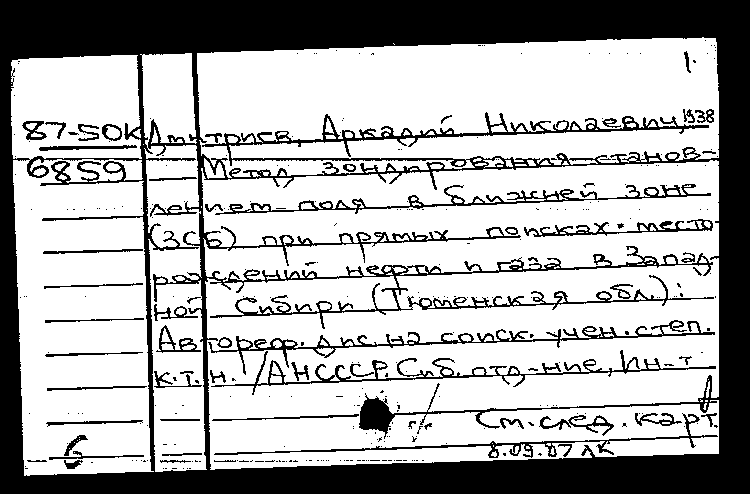 1.
87-50К Дмитриев, Аркадий Николаевич, 1938
6859 Метод зондирования становлением поля в ближней зоне
(ЗСБ) при прямых поисках место-
рождений нефти и газа в Запад-
ной Сибири (Тюменская обл.):
Автореф. дис. на соиск. учен. степ.
к.т.н. / АН СССР. Сиб. отд-ние, Ин-т
См. след. карт.
6
8.09.87 ЛК